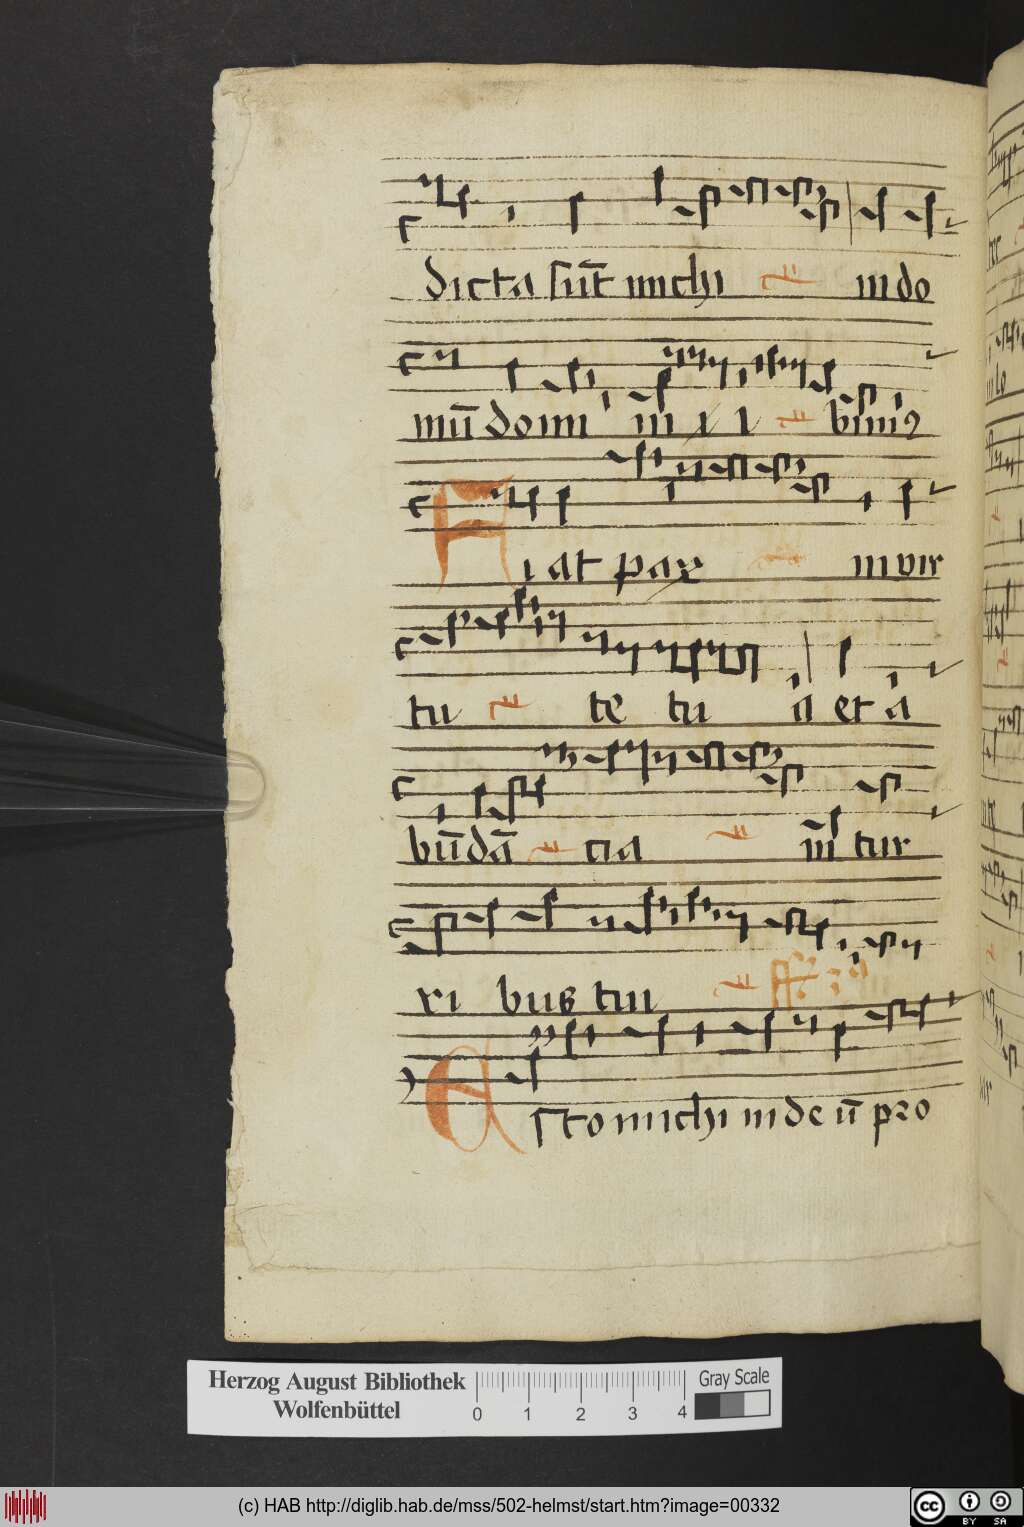 dicta sūt michi in do
mū domi ni x i bimꝰ
Fiat pax in vir
tu te tu a et a
būdā cia in tur
ri bus tui
Esto michi in de ū pro
Herzog August Bibliothek
Wolfenbüttel
0 1 2 3 4
Gray Scale
(c) HAB http://diglib.hab.de/mss/502-helmst/start.htm?image=00332
cc BY SA